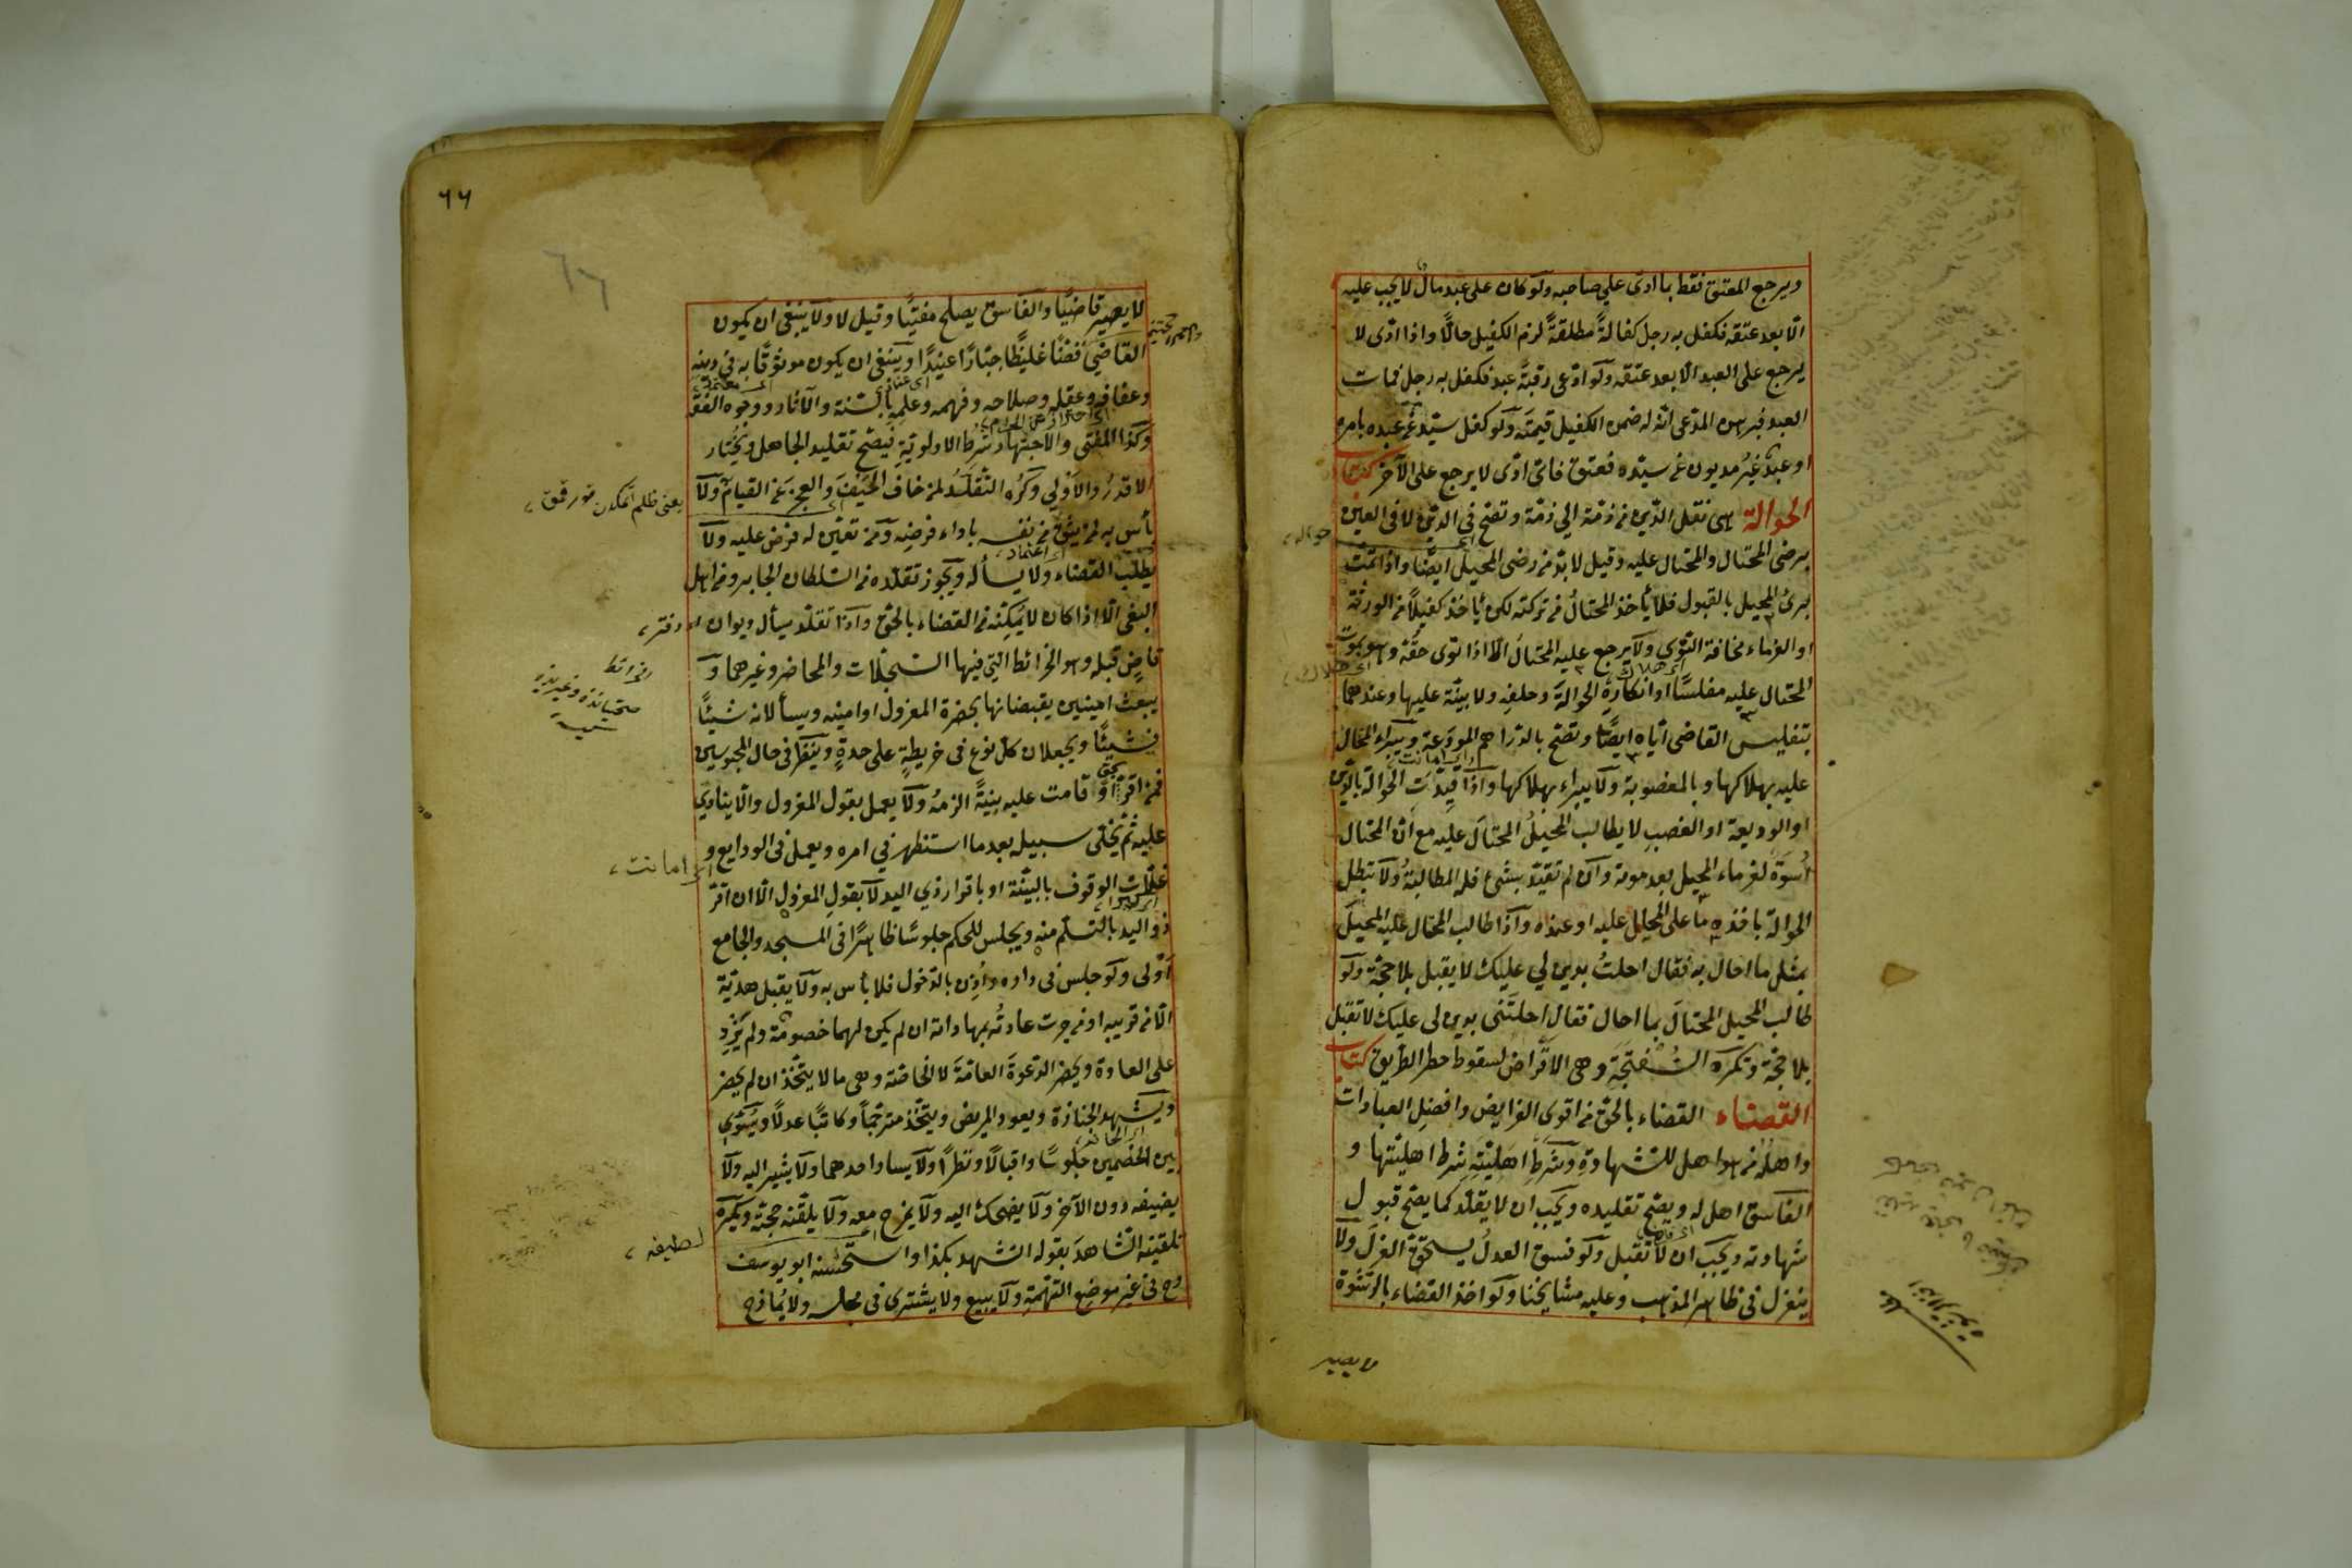 ويرجع المعتق فقط بما ادى على صاحبه ولو كان على عبد مال لا يجب عليه
الا بعد عتقه فكفل به رجل كفالةً مطلقةً لزم الكفيل حالًا واذا ادى لا
يرجع على العبد الا بعد عتقه ولو ادعى رقبة عبد فكفل به رجل فمات
العبد فبرهن المدعى انه له ضمن الكفيل قيمته ولو كفل سيد عن عبده بامره
او عبد غير مديون عن سيده فعتق فاى ادى لا يرجع على الآخر كتاب
الحوالة هى نقل الدين من ذمة الى ذمة وتصح فى الدين لا فى العين
برضى المحتال والمحتال عليه وقيل لا بد من رضى المحيل ايضًا واذا تمت
برئ المحيل بالقبول فلا يأخذ المحتال من تركته لكن يأخذ كفيلًا من الورثة
او الغرماء مخافة التوى ولا يرجع عليه المحتال الا اذا توى حقه وهو بموت
المحتال عليه مفلسًا او انكاره الحوالة وحلفه ولا بينة عليها وعندهما
بتفليس القاضى اياه ايضًا وتصح بالدراهم المودعة ويبراء المحتال
عليه بهلاكها وبالمغصوبة ولا يبراء بهلاكها واذا قيدت الحوالة بالدين
او الوديعة او الغصب لا يطالب المحيل المحتال عليه مع ان المحتال
اسوة لغرماء المحيل بعد موته وان لم تقيد بشئ فله المطالبة ولا تبطل
الحوالة باخذه ما على المحتال عليه او عنده واذا طالب المحتال عليه المحيل
بمثل ما احال به فقال احلت بدين لى عليك لا يقبل بلا حجة ولو
طالب المحيل المحتال بما احال فقال احلتنى بدين لى عليك لا تقبل
بلا حجة وتكره السفتجة وهى الاقراض لسقوط خطر الطريق كتاب
القضاء القضاء بالحق من اقوى الفرايض وافضل العبادات
واهله من هو اهل للشهادة وشرط اهليته شرط اهليتها و
الفاسق اهل له ويصح تقليده ويجب ان لا يقلد كما يصح قبول
شهادته ويجب ان لا تقبل ولو فسق العدل يستحق العزل ولا
ينعزل فى ظاهر المذهب وعليه مشايخنا ولو اخذ القضاء بالرشوة
لا يصير
٦٦
لا يصير قاضيًا والفاسق يصلح مفتيًا وقيل لا ولا ينبغى ان يكون
القاضى فظًا غليظًا جبارًا عنيدًا وينبغى ان يكون موثوقًا به فى دينه
وعفافه وعقله وصلاحه وفهمه وعلمه بالسنة والآثار ووجوه الفقه
وكذا المفتى والاجتهاد شرط الاولوية فيصح تقليد الجاهل ويختار
الاقدر والاولى وكره التقلد لمن خاف الحيف والعجز عن القيام ولا
بأس به لمن يثق من نفسه باداء فرضه ومن تعين له فرض عليه ولا
يطلب القضاء ولا يسأله ويجوز تقلده من السلطان الجاير ومن اهل
البغى الا اذا كان لا يمكنه من القضاء بالحق واذا تقلد يسأل ديوان
قاض قبله وهو الخرائط التى فيها السجلات والمحاضر وغيرهما و
يبعث امينين يقبضانها بحضرة المعزول او امينه ويسألانه شيئًا
فشيئًا ويجعلان كل نوع فى خريطة على حدة وينظر فى حال المحبوسين
فمن اقر بحق او قامت عليه بينة الزمه ولا يعمل بقول المعزول والا ينادى
عليه ثم يخلى سبيله بعد ما استظهر فى امره ويعمل فى الودايع و
غلات الوقوف بالبينة او باقرار ذى اليد لا بقول المعزول الا ان اقر
ذو اليد بالتسلم منه ويجلس للحكم جلوسًا ظاهرًا فى المسجد والجامع
اولى ولو جلس فى داره واذن بالدخول فلا بأس به ولا يقبل هدية
الا من قريبه او من جرت عادته بمهاداته ان لم يكن لهما خصومة ولم يزد
على العادة ويحضر الدعوة العامة لا الخاصة وهى ما لا يتخذ ان لم يحضر
ويشهد الجنازة ويعود المريض ويتخذ مترجمًا وكاتبًا عدلًا ويسوى
بين الخصمين جلوسًا واقبالًا ونظرًا ولا يسار احدهما ولا يشير اليه ولا
يضيفه دون الآخر ولا يضحك اليه ولا يمزح معه ولا يلقنه حجته ويكره
تلقينه الشاهد بقوله اتشهد بكذا واستحسنه ابو يوسف
رح فى غير موضع التهمة ولا يبيع ولا يشترى فى مجلسه ولا يمازح
اى امانت
لطيفه